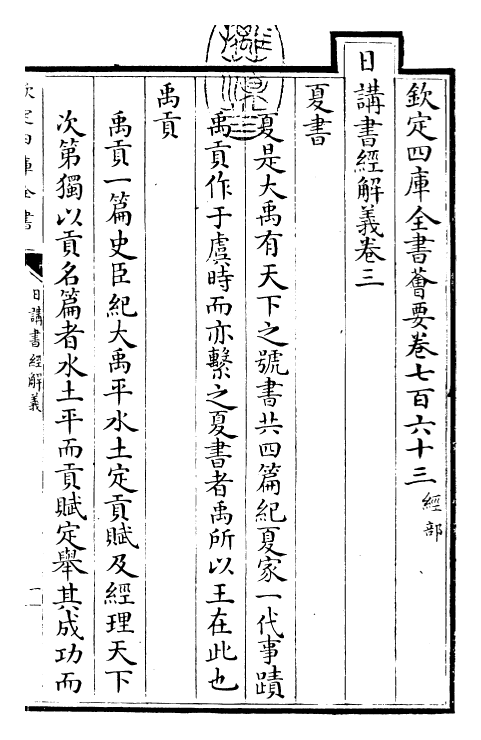 欽定四庫全書薈要卷七百六十三 經部
日講書經解義卷三
夏書
夏是大禹有天下之號書共四篇紀夏家一代事蹟
禹貢作于虞時而亦繫之夏書者禹所以王在此也
禹貢
禹貢一篇史臣紀大禹平水土定貢賦及經理天下
次第獨以貢名篇者水土平而貢賦定舉其成功而
欽定四庫全書
日講書經解義
一